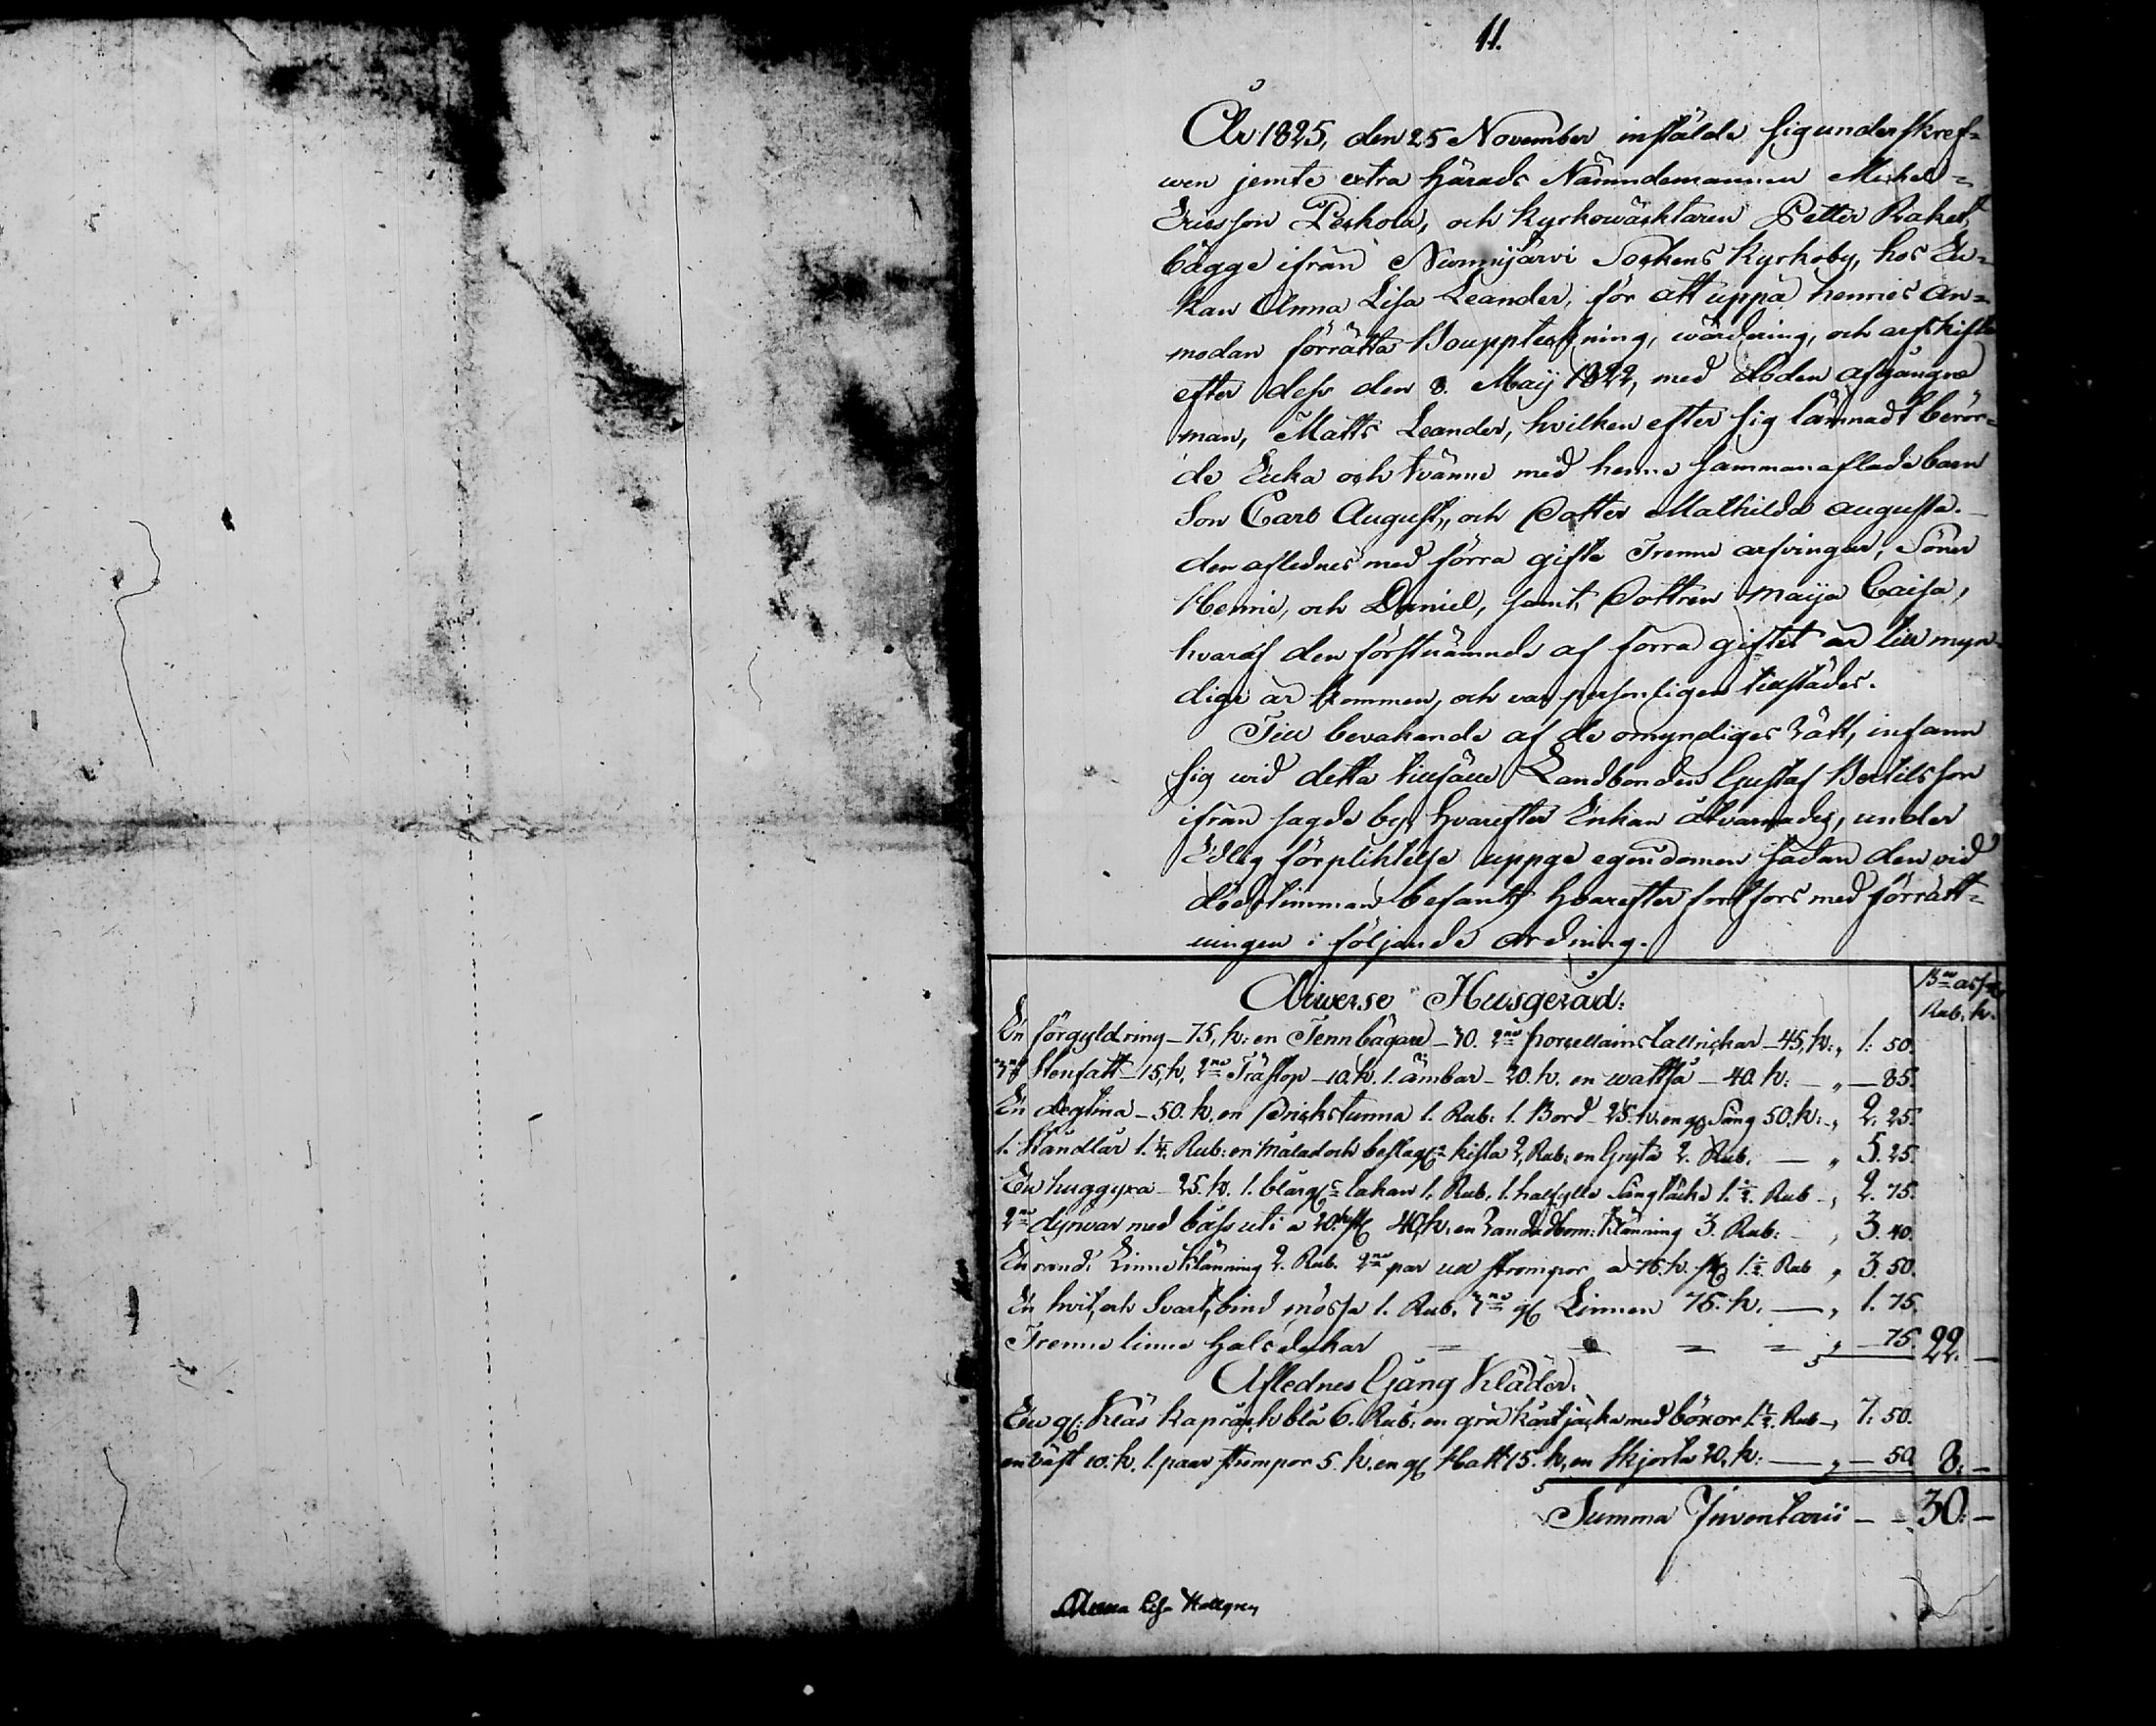 11.
År 1825, den 25 November instälde sig underskref-
wen jemte extra Härads Nämndemannen Michel
Ericsson Perkola, och Kyrkowäcktaren Petter Raket,
bägge ifrån Nurmijärvi Sockens Kyrkoby, hos En-
kan Anna Lisa Leander, för att uppå hennes an-
modan förrätta Bouppteckning, wärdering, och arfskifte
efter dess den 8. Maij 1822, med döden afgångne
man, Matts Leander, hvilken efter sig lämnadt berör-
de Encka och tvänne med henne sammanaflade barn
Son Carl August, och Dotter Mathilda Augusta.
den aflednes med förra gifte Trenne arfvingar, Söner
Henric, och Daniel, samt Dottren Maija Caisa,
hvaraf den förstnämnde af förra giftet är till myn-
dige år kommen, och var personligen tillstädes.
Till bevakande af de omyndiges rätt, infann
sig wid detta tillfälle Landbonden Gustaf Bertilsson
ifrån sagde by, Hvarefter Enkan åtvarnades, under
Edlig förpliktelse uppge egendomen sådan den vid
dödstimman befants hvarefter fortfors med förrätt-
ningen i följande ordning.
Diverse Husgeråd: Rub. k.
En förgyld ring - 75, k: en Tennbägare - 30. 2ne porcellains tallrickar - 45, k: 1: 50.
3ne Stenfatt - 15, k, 2ne Trästop - 10. k. 1. ämbar - 20. k. en wattså - 40. k: - 85.
En degtina - 50. k. en Drickstunna 1. Rub: 1. Bord - 25. k. en gl Säng 50. k: 2. 25.
1. Håndlår 1. 1/4. Rub: en målad och beslagen kista 2, Rub: en Gryta 2. Rub. 5. 25.
En huggyxa - 25. k. 1. blårgs lakan 1. Rub. 1. halfylle Sängtäcke 1. 1/2. Rub 2. 75.
2ne dynvar med båss uti a 20. k st 40, k. en Randad bom: Klänning 3. Rub: 3. 40.
En rand: Linne Klänning 2. Rub. 2ne par ull strompor a 75. k. st 1. 1/2. Rub 3. 50.
En hvit, och Svart, bind mössa 1. Rub. 3ne gl Linnen 75. k. 1. 75.
Trenne linne halsdukar - 75. 22. -
Aflednes Gång Kläder.
En gl: Kläs kaprock blå 6. Rub: en grå kort jacka med böxor 1. 1/2. Rub 7: 50.
en väst 10. k. 1. paar strompor 5. k. en gl Hatt 15. k, en Skjorta 20, k: - 50. 8: -
Summa Inventarii - - 30: -
Anna Lisa Hallgren